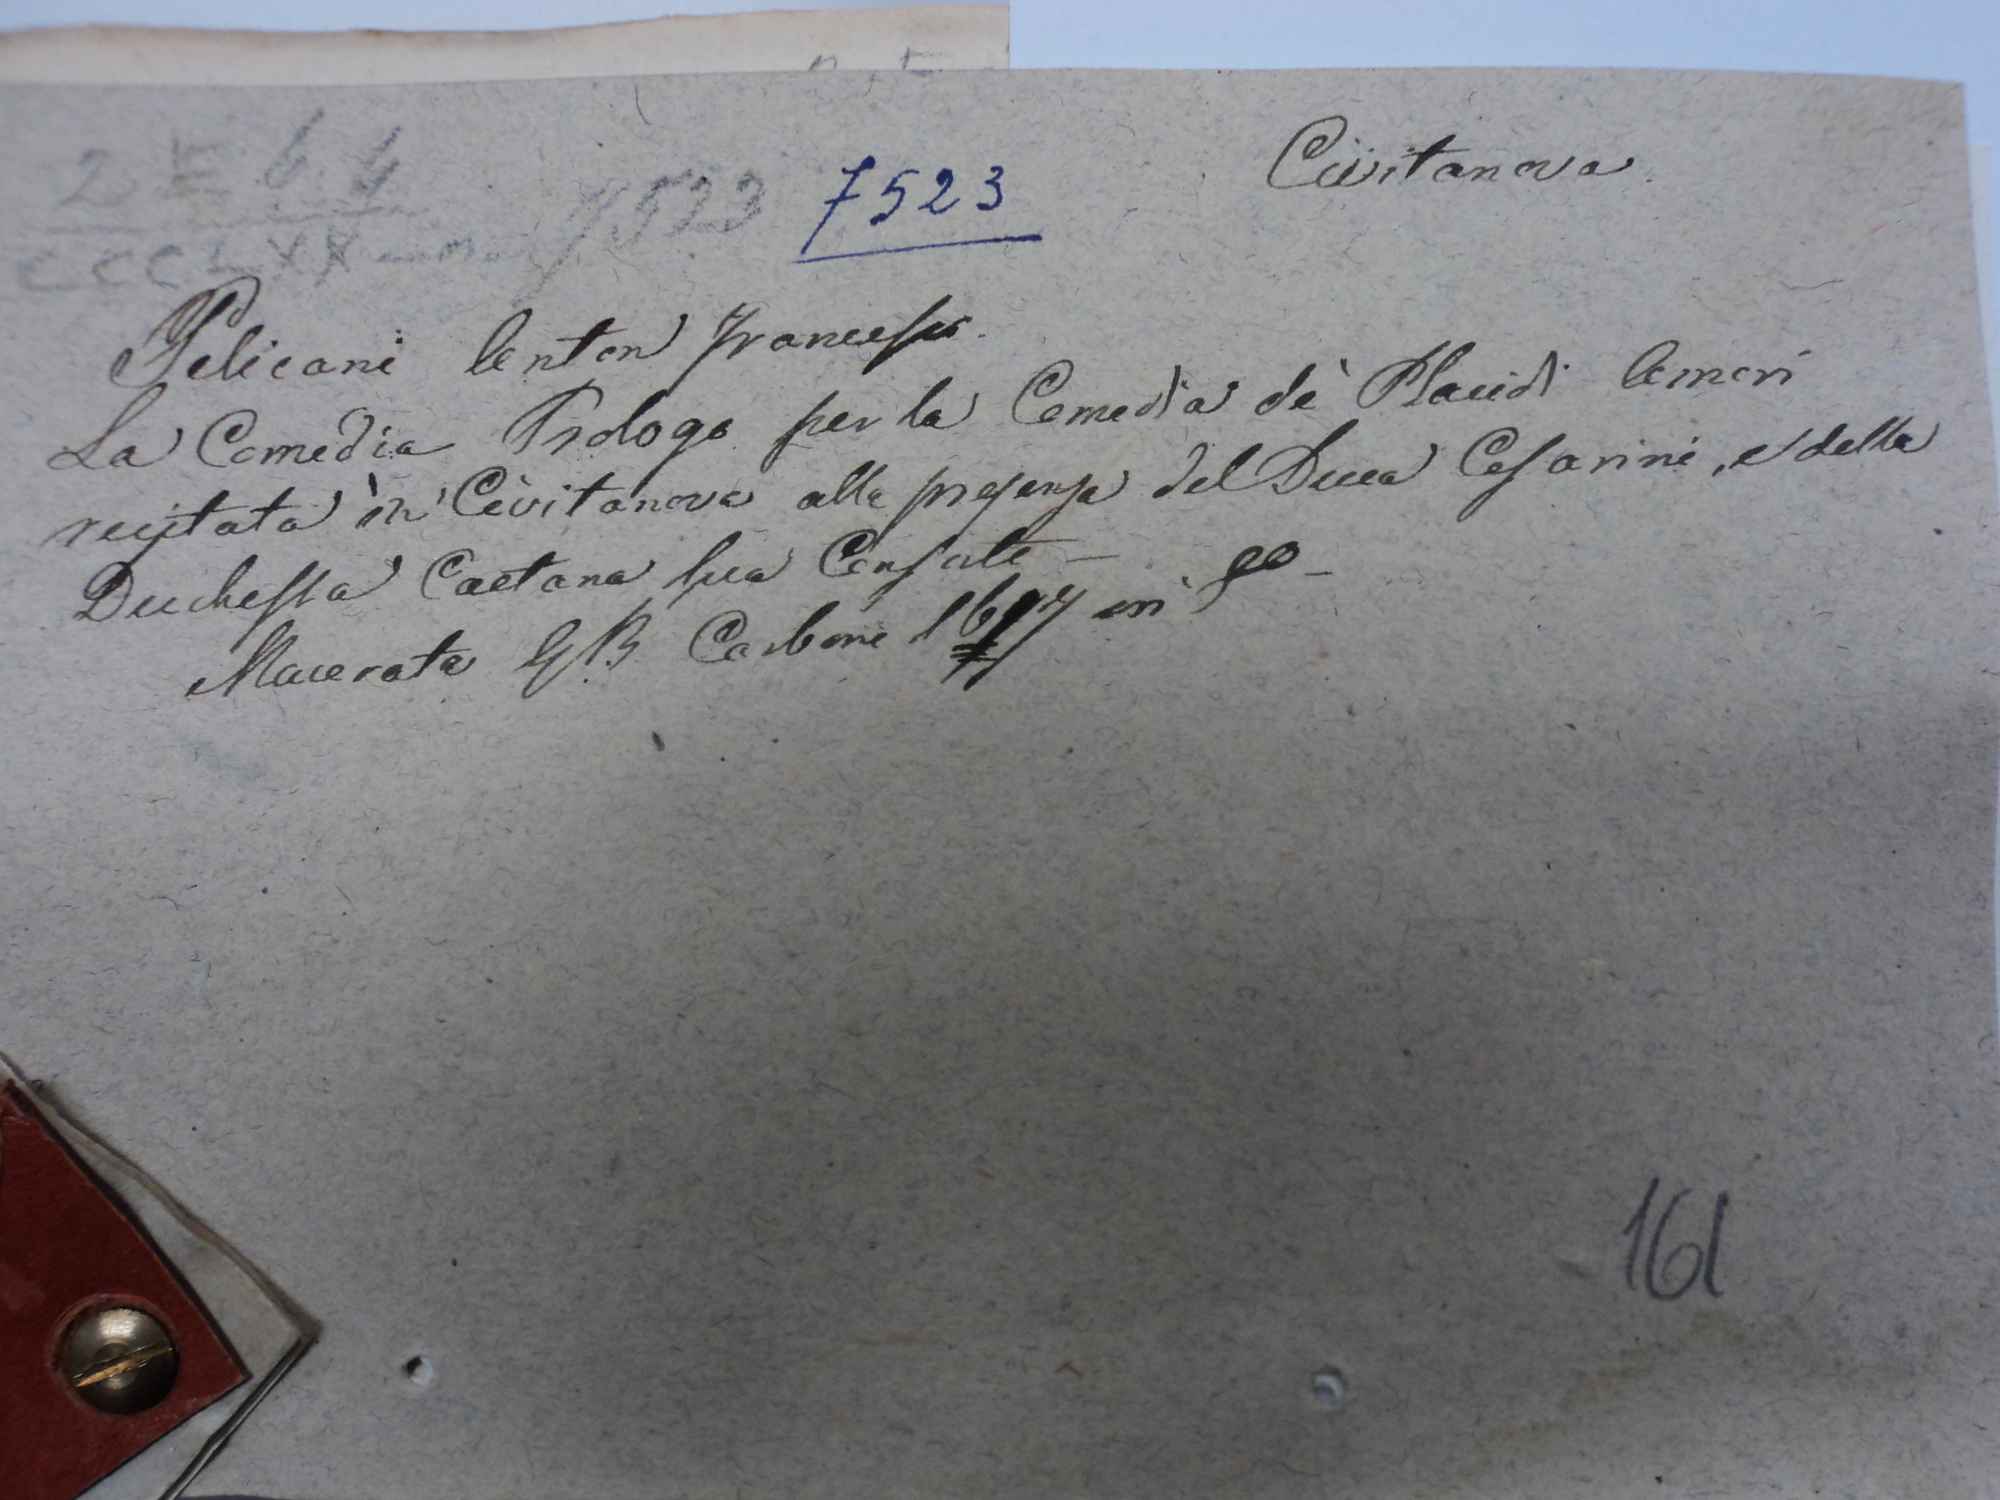 2 E 6 4
CCCLXX
7523 7523
Civitanova
Pelicani Anton Francesco.
La Comedia Prologo per la Comedia de' Placidi Amori
recitata in Civitanova alla presenza del Duca Cesarini, e della
Duchessa Caetana sua Consorte –
Macerata G B Carboni 16 in 8o –
161